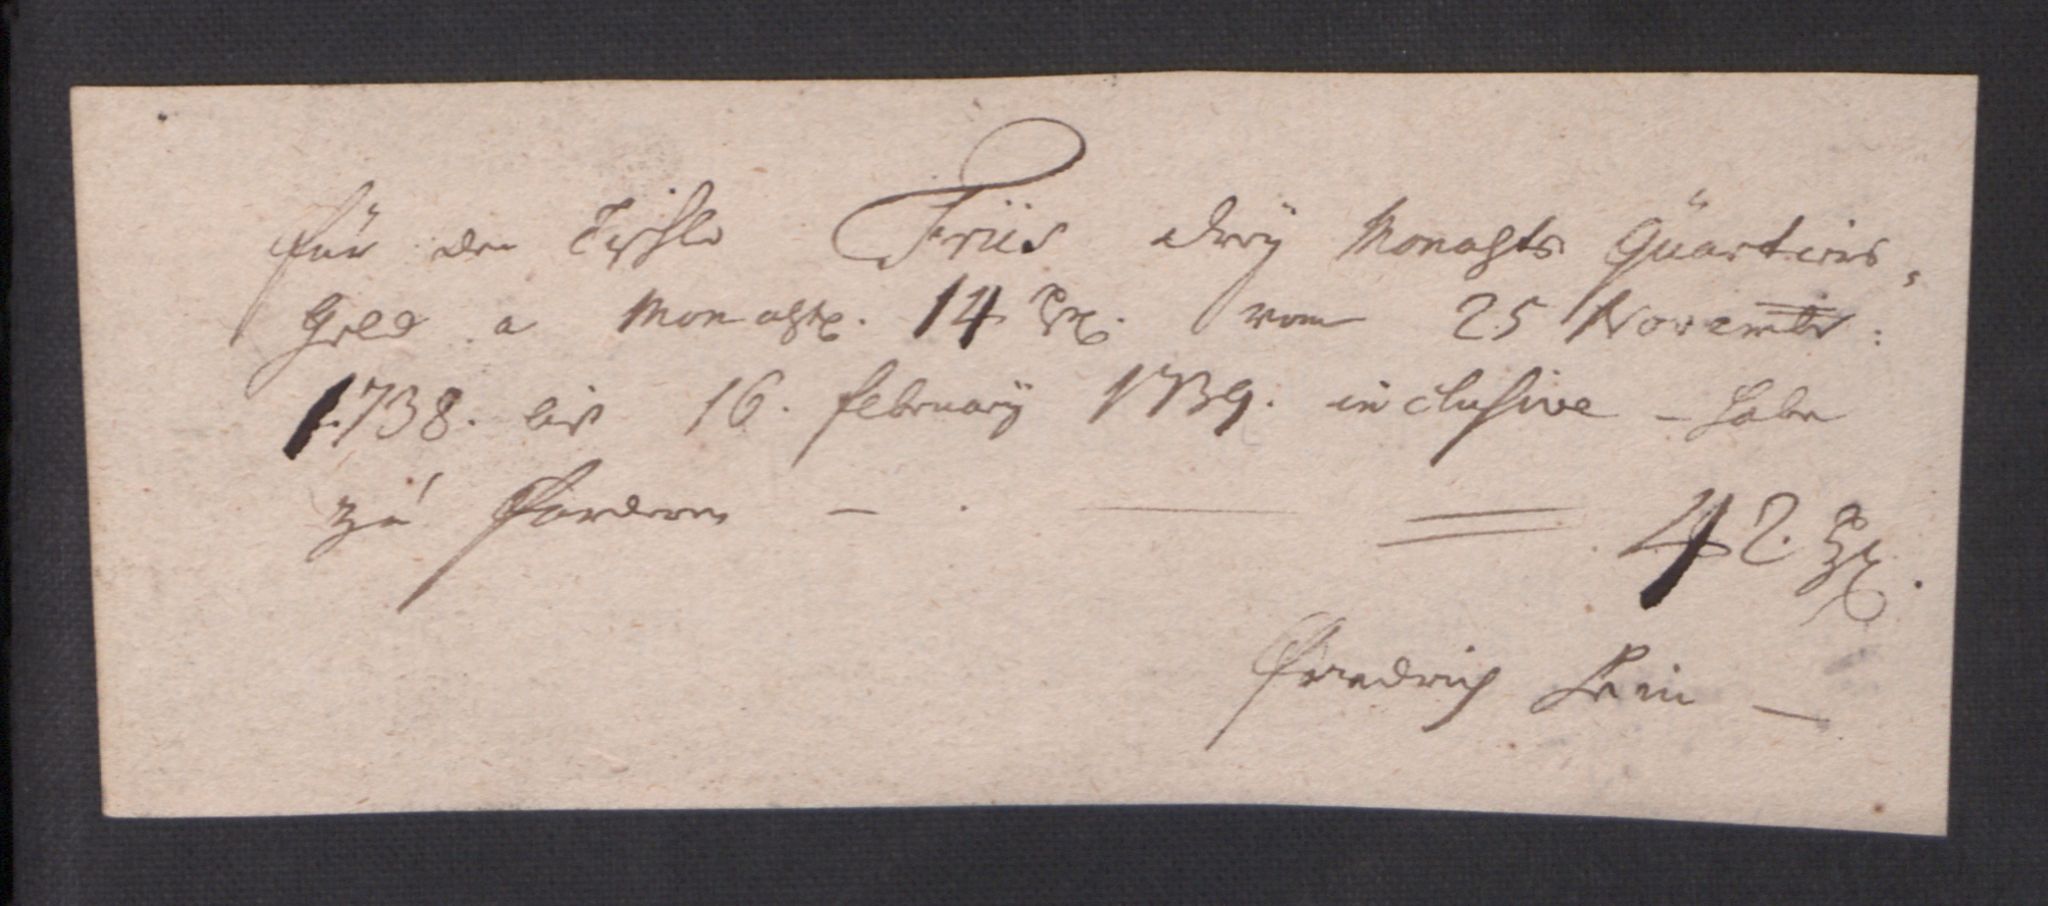 Für den Friis dreÿ Monahts Quartirs,
Geld a Monahtl. 14 Rx. vom 25 Novembr:
1738. bis 16. februarÿ 1739. inclusive – habe
zu fordern — . — = 42. Rx.
Friedrich —